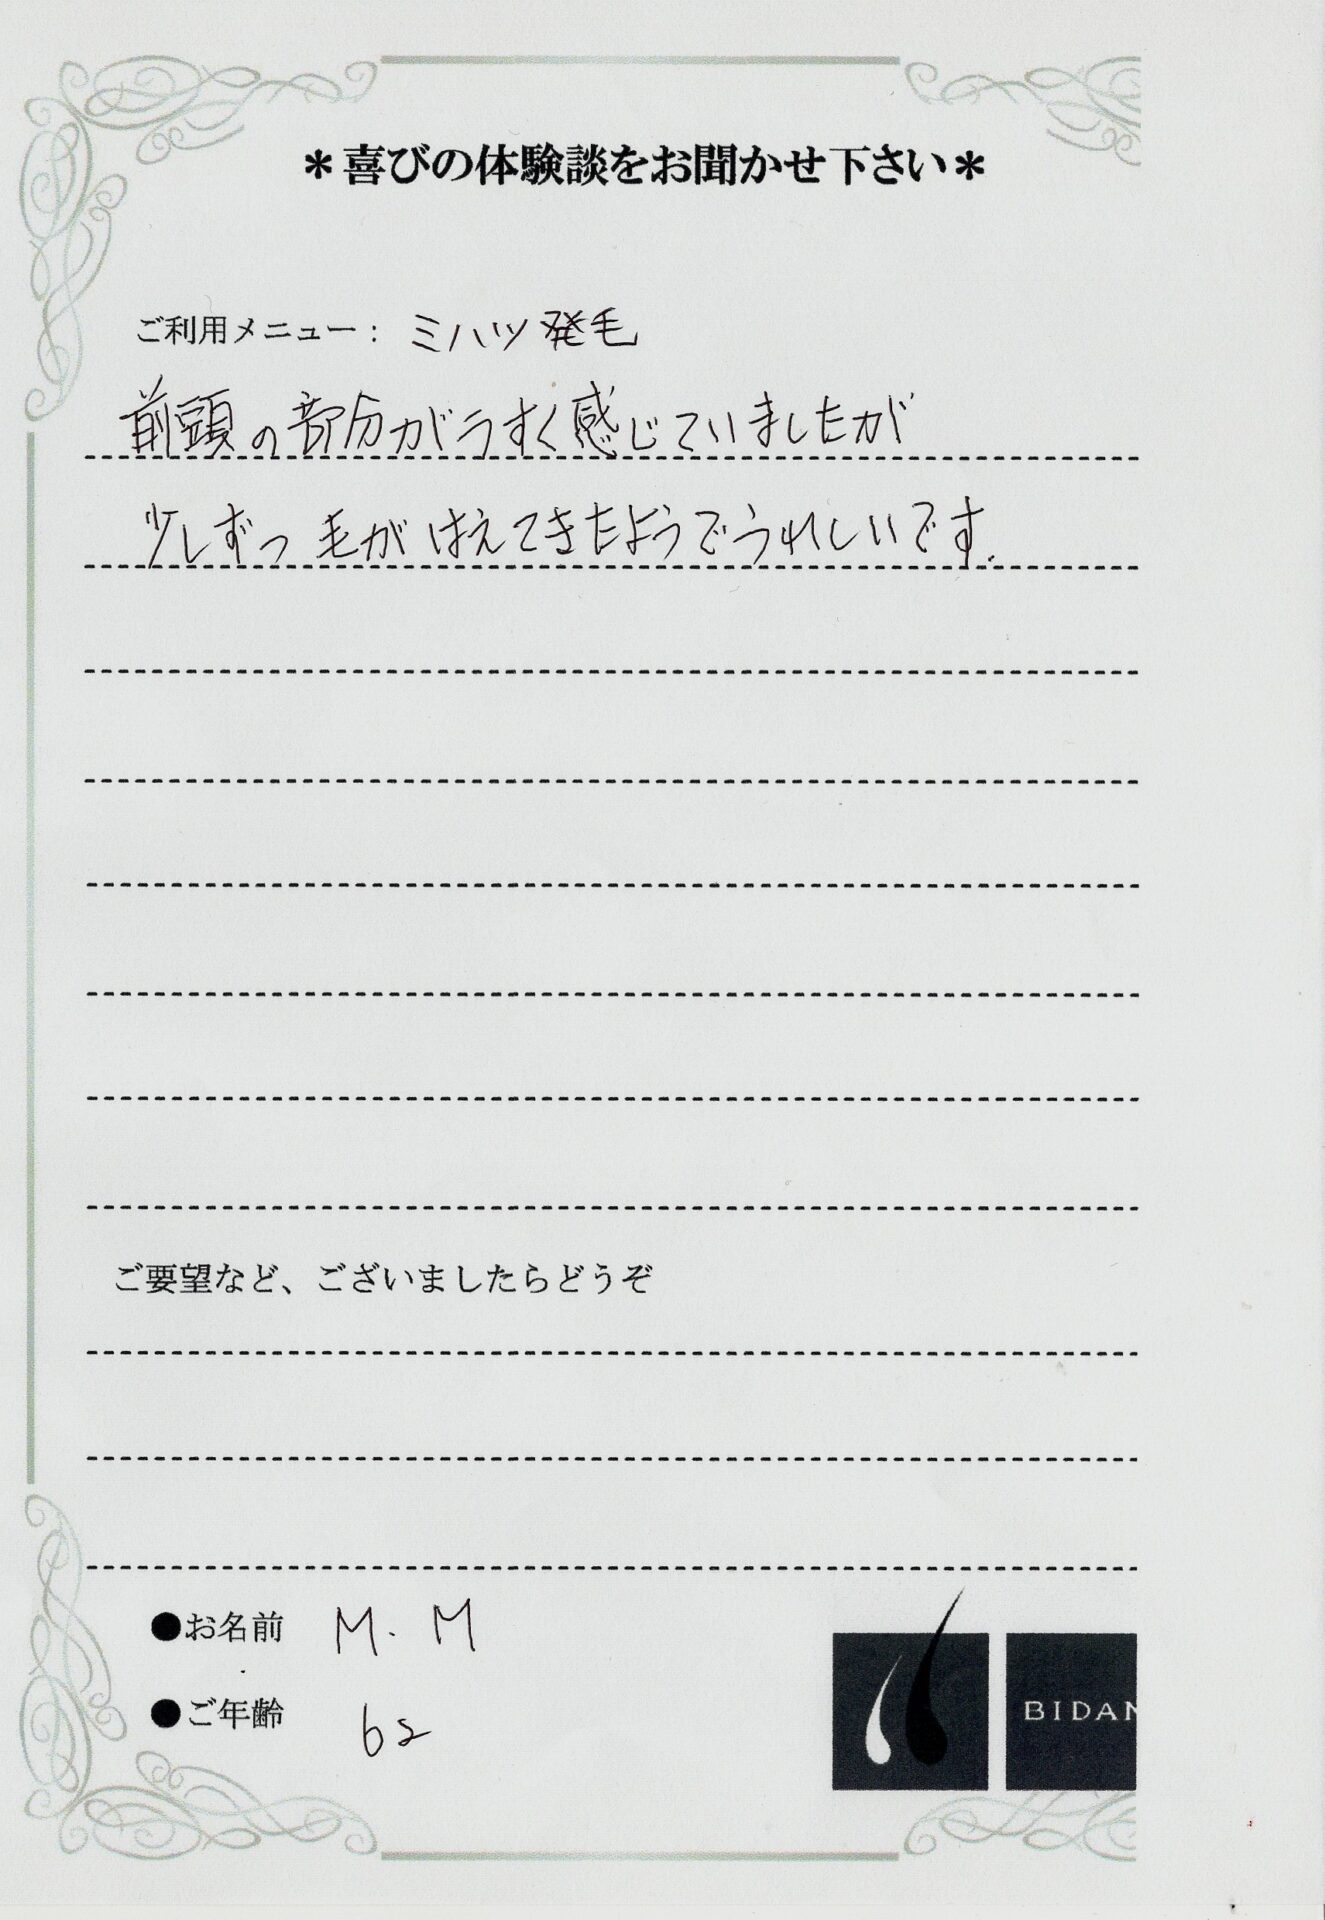 ＊喜びの体験談をお聞かせ下さい＊
ご利用メニュー： ミハツ発毛
前頭の部分がうすく感じていましたが
少しずつ毛がはえてきたようでうれしいです.
ご要望など、ございましたらどうぞ
●お名前 M.M
●ご年齢 62
BIDAN